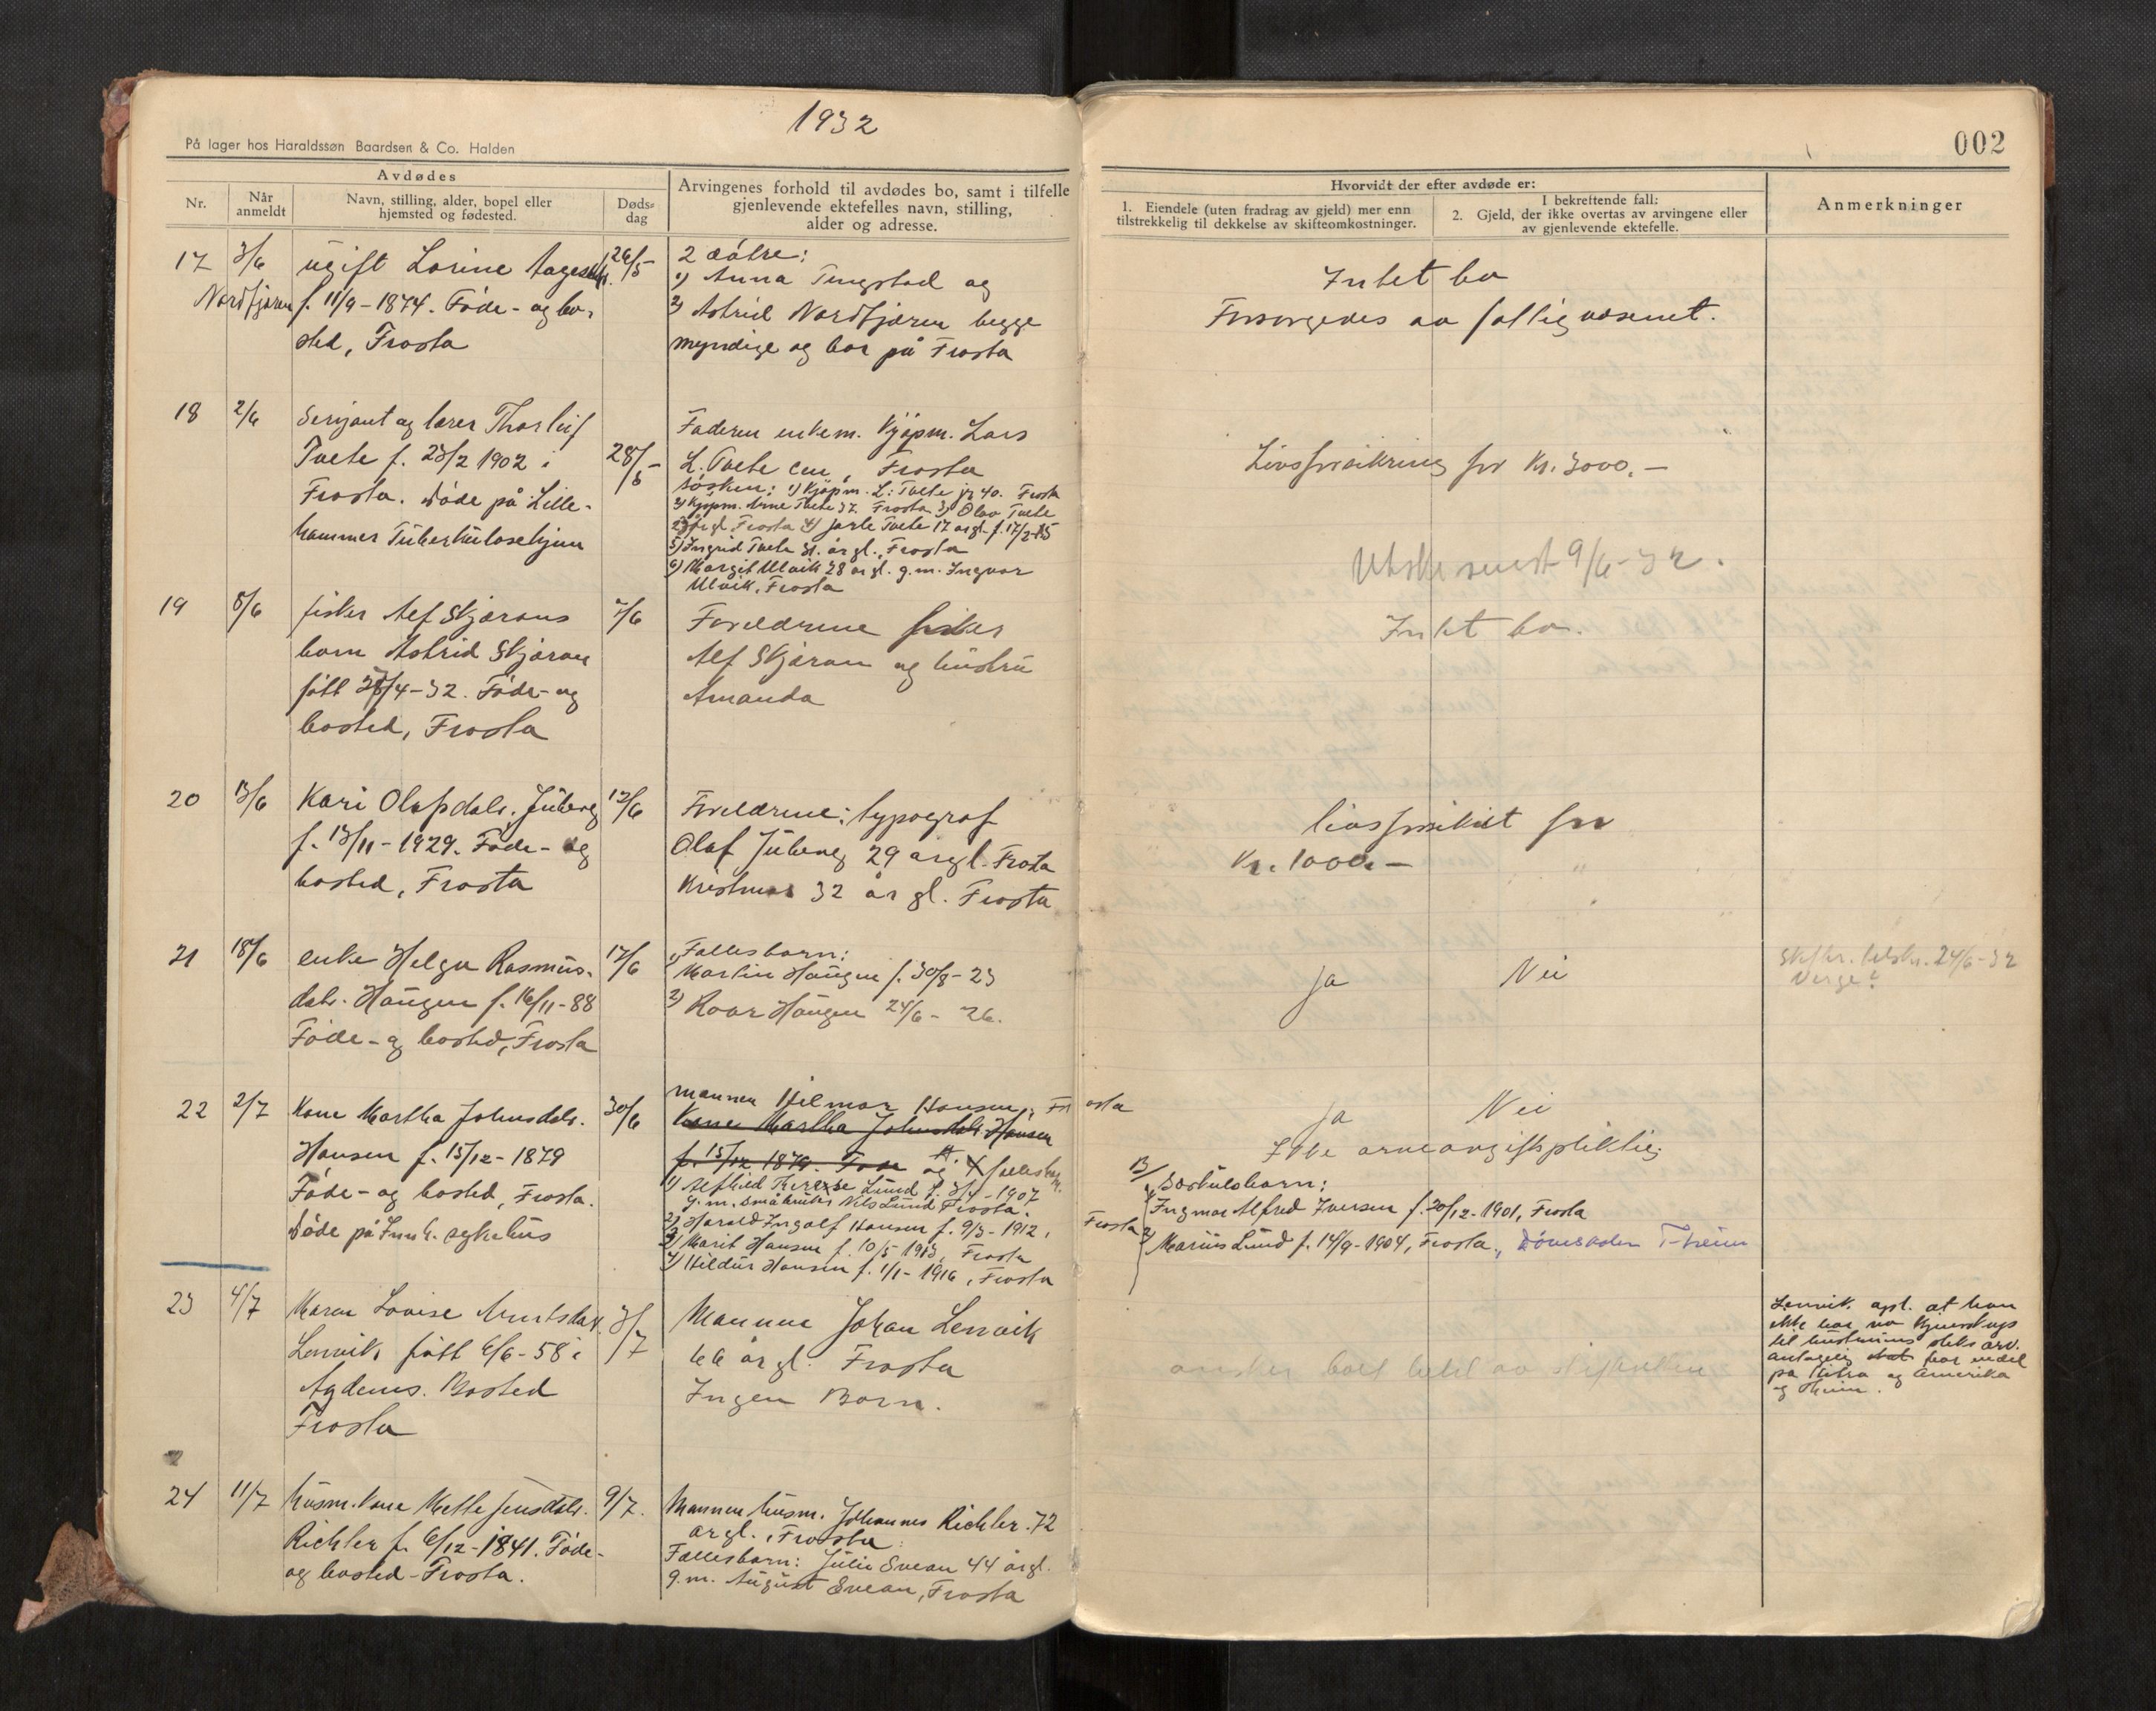 1932
002
På lager hos Haraldssøn Baardsen & Co. Halden
Avdødes
Nr.
Når anmeldt
Navn, stilling, alder, bopel eller hjemsted og fødested.
Døds-dag
Arvingenes forhold til avdødes bo, samt i tilfelle
gjenlevende ektefelles navn, stilling,
alder og adresse.
Hvorvidt der efter avdøde er:
1. Eiendele (uten fradrag av gjeld) mer enn
tilstrekkelig til dekkelse av skifteomkostninger.
I bekreftende fall:
2. Gjeld, der ikke overtas av arvingene eller
av gjenlevende ektefelle.
Anmerkninger
17 3/6 ugift Lorine Aagesd. 26/5
Nordfjæren f. 11/9-1874. Föde- og bo-
sted, Frosta
2 dötre:
1) Anna Tingstad og
2) Astrid Nordfjæren begge
myndige og bor på Frosta
Intet bo
Forsørgedes av fattigvæsenet.
18 2/6 Serjant og lærer Thorleif
Tvete f. 23/2 1902 i 28/5
Frosta. Döde på Lille-
hammer Tuberkulosehjem
Faderen enkem. Kjöpm. Lars
L. Tvete sen, Frosta
Søsken: 1) Kjöpm. L. Tvete jr 40. Frosta
2) Kjöpm. Arne Tvete 37 Frosta 3) Olav Tvete
23 årgl. Frosta 4) Jarle Tvete 17 årgl. f. 17/2-15
5) Ingrid Tvete 31 år gl., Frosta
6) Margit Ulvik 28 årgl. g.m. Ingvar
Ulvik, Frosta
Livsforsikring for Kr. 3000.-
9/6-32.
19 8/6 fisker Alf Skjærans 7/6
barn Astrid Skjæran
fött 27/4-32. Föde- og
bosted, Frosta
Foreldrene fisker
Alf Skjæran og hustru
Amanda
Intet bo.
20 13/6 Kari Olafsdatr. Juberg 12/6
f. 13/11-1929. Föde- og
bosted, Frosta
Foreldrene: typograf
Olaf Juberg 29 årgl. Frosta
Kristine 32 år gl. Frosta
livsforsikret for
Kr. 1000.-
21 18/6 enke Helga Rasmus- 17/6
datr. Haugen f. 16/11-88
Föde- og bosted, Frosta
Fellesbarn:
1) Martin Haugen f. 30/8-23
2) Roar Haugen 24/6-26.
ja
Nei
24/6-32
Verge?
22 2/7 Kone Martha Johnsdatr. 30/6
Hansen f. 15/12-1879
Föde- og bosted, Frosta.
Döde på Innh. sykehus
mannen Hilmar Hansen, Frosta
Kone Martha Johnsdatr. Hansen
f. 15/12 1879. Föde og A. 4 fellesbarn.
1) Alfhild Therese Lund f. 3/4-1907
g.m. småbruker Nils Lund Frosta.
2) Harald Ingolf Hansen f. 9/3-1912, Frosta
3) Marit Hansen f. 10/5 1913, Frosta
4) Hildur Hansen f. 1/1-1916, Frosta
ja
Nei
Ikke arveavgiftspliktig
B/ Særkulsbarn:
1) Ingmar Alfred Iversen f. 20/12-1901, Frosta
2) Marius Lund f. 14/9-1904, Frosta, Döveskolen T-heim
23 4/7 Maren Lovise Arntsdatr. 3/7
Lervik, fött 6/6-58 i
Agdenes. Bosted
Frosta
Mannen Johan Lervik
66 årgl. Frosta
Ingen Barn.
ønsker boet behl av skifteretten
Lervik opl. at han
ikke har no kjennskap
til hustruens slekt arv.
antagelig har endel
på Hitra og Amerika
og Theim.
24 11/7 Husm. kone Mette Jensdatr. 9/7.
Richter f. 6/12-1841. Föde-
og bosted - Frosta.
Mannen husm. Johannes Richter. 72
årgl., Frosta
Fællesbarn: Julie Svean 44 årgl.
g.m. August Svean, Frosta